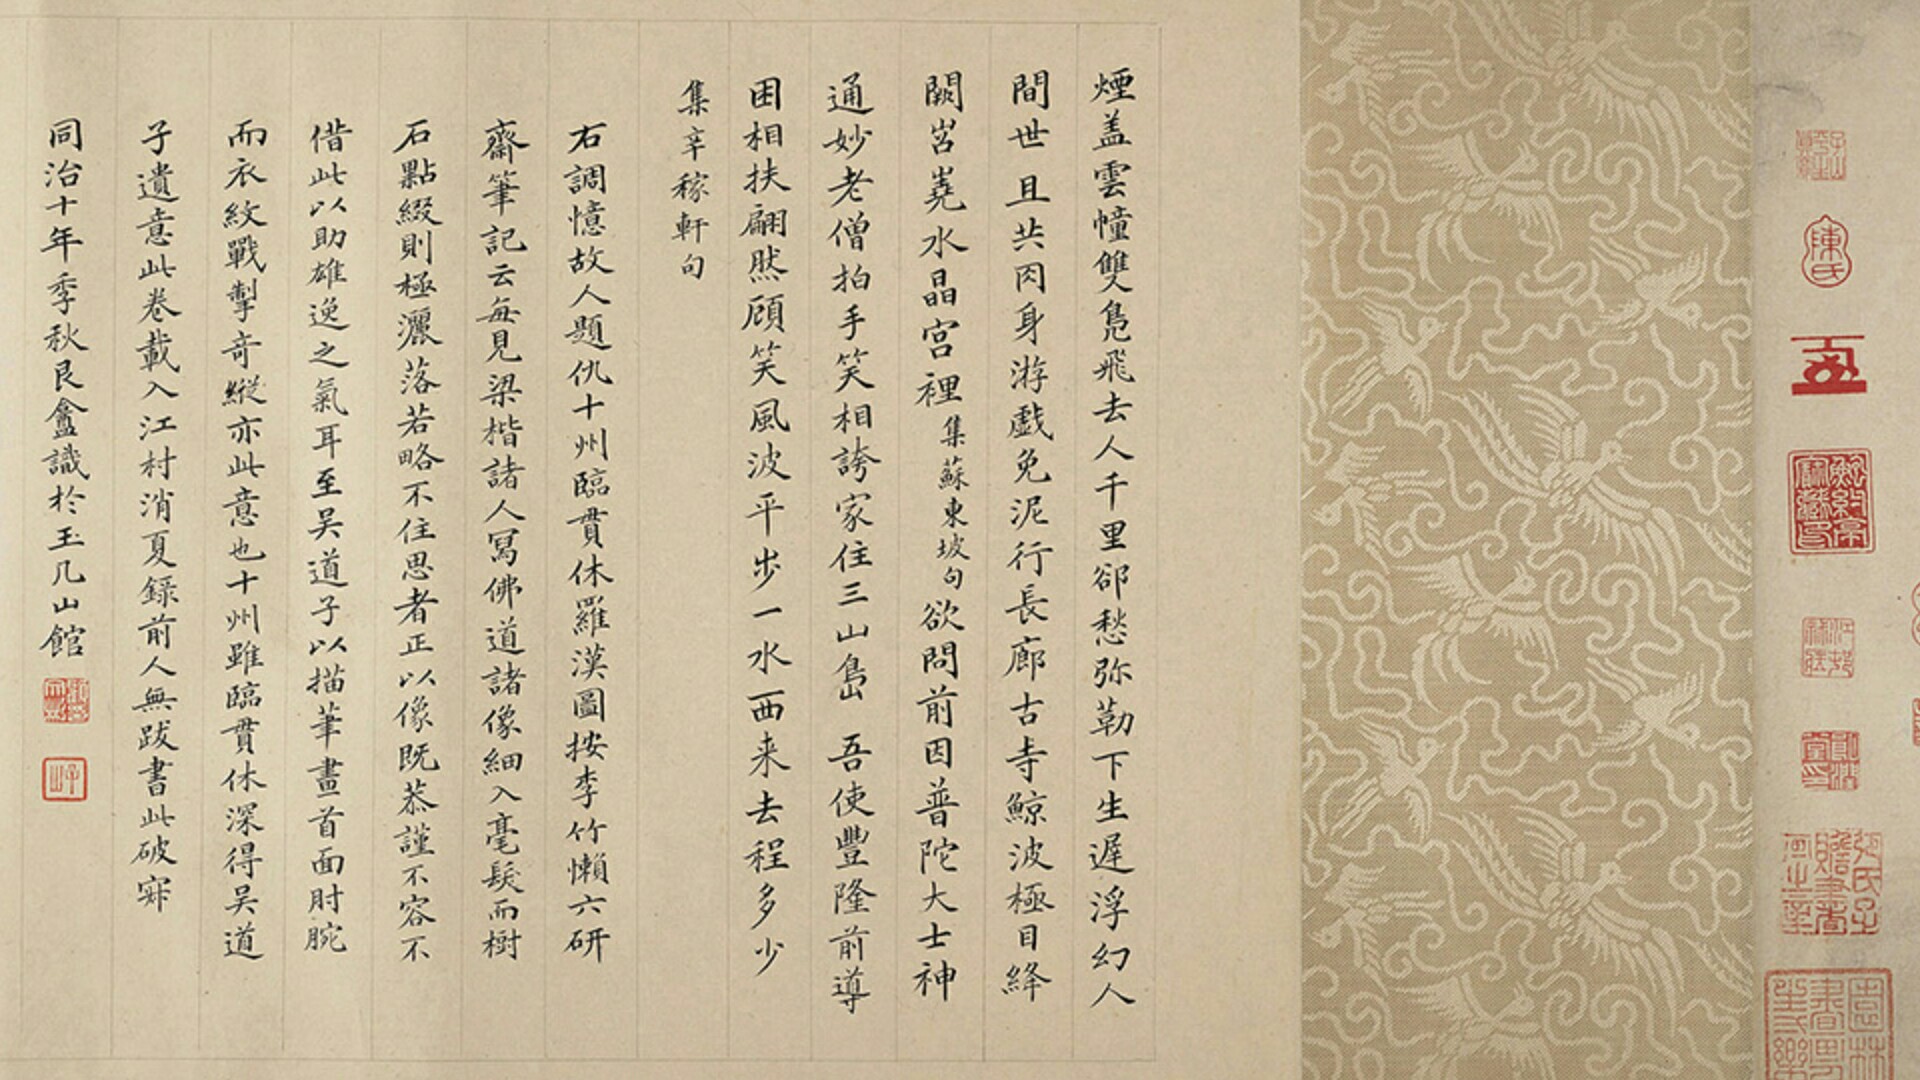 煙盖雲幢雙鳧飛去人千里郤愁弥勒下生遲浮幻人
間世且共肉身游戲免泥行長廊古寺鯨波極目絳
闕岧嶤水晶宮裡集蘇東坡句欲問前因普陀大士神
通妙老僧拍手笑相誇家住三山島 吾使豐隆前導
困相扶翩然顧笑風波平步一水西来去程多少
集辛稼軒句
右調憶故人題仇十州臨貫休羅漢圖按李竹懶六研
齋筆記云每見梁楷諸人寫佛道諸像細入毫髮而樹
石點綴則極灑落若略不住思者正以像既恭謹不容不
借此以助雄逸之氣耳至吴道子以描筆畫首面肘腕
而衣紋戰掣奇縱亦此意也十州雖臨貫休深得吴道
子遺意此卷載入江村消夏録前人無跋書此破寂
同治十年季秋艮盦識於玉几山館
陳氏